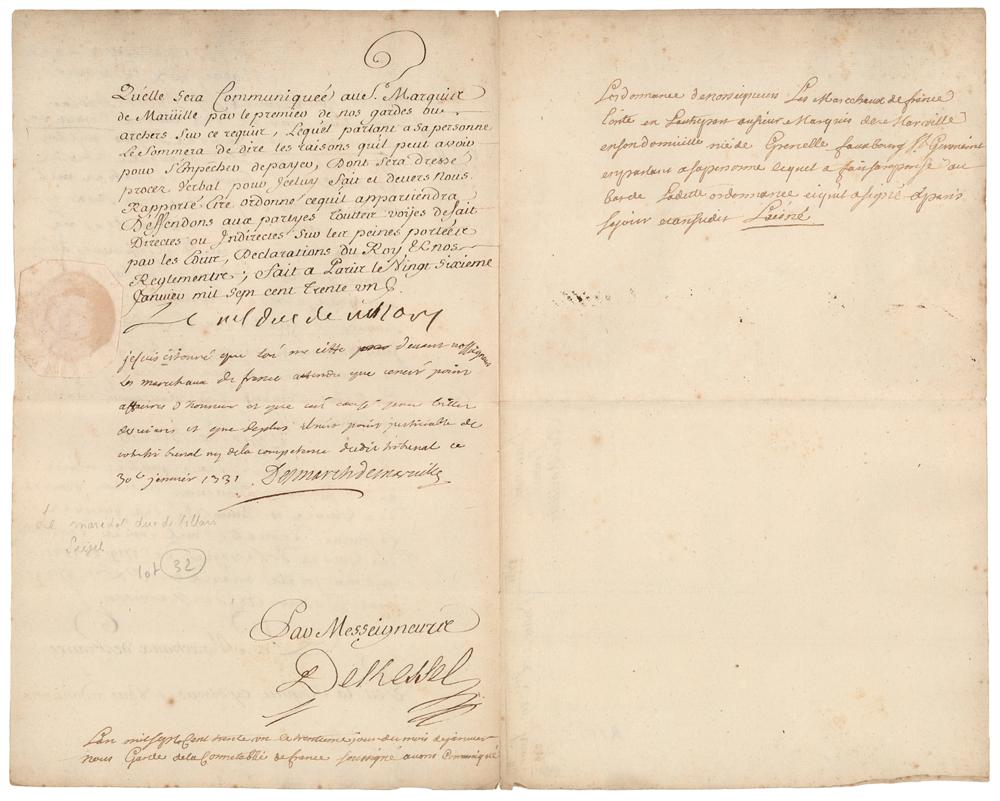 Qu'elle sera Communiqueé au Sr. Marquis
de Marüille par le premier de nos gardes ou
archers sur ce requis, Lequel parlant a sa personne
Le Sommera de dire les raisons qu'il peut avoir
pour s'Empecher de payer, Dont sera dressé
procez Verbal pour Jceluy fait et devers nous
Rapporté Etre ordonné ce qu'il appartiendra
Deffendons aux partyes touttes voÿes de fait
Directes ou Jndirectes Sur les peines portées
par les Edits, Declarations du Roy Et nos
Reglements; fait a Paris le Vingt Sixieme
Janvier mil sept cent trente un
Le mal duc de villars
je suis étonné que loi me citte devant nosseigneurs
les marechaux de france attendu que ce n'est point
affaires d'honneur et que
et que de plus je ne suis point justiciable de
votre tribunal ny de la competence dudit tribunal ce
30e janvier 1731
Le marechal duc de Villars
lot 32
Par Messeigneurs
DeKessel
L'an mil sept Cent trente un Le trentieme jour du mois de janvier
nous Garde de la Connetablie de france soussigné avons Communiqué
L'ordonnance de nosseigneurs Les Marechaux de france
au sieur Marquis de Marville
en son domicille rüe de Grenelle fauxbourg St. Germain
en parlant a sa personne lequel a fait sa reponse au
bas de Ladite ordonnance et a signé a paris
se jour et an susdit